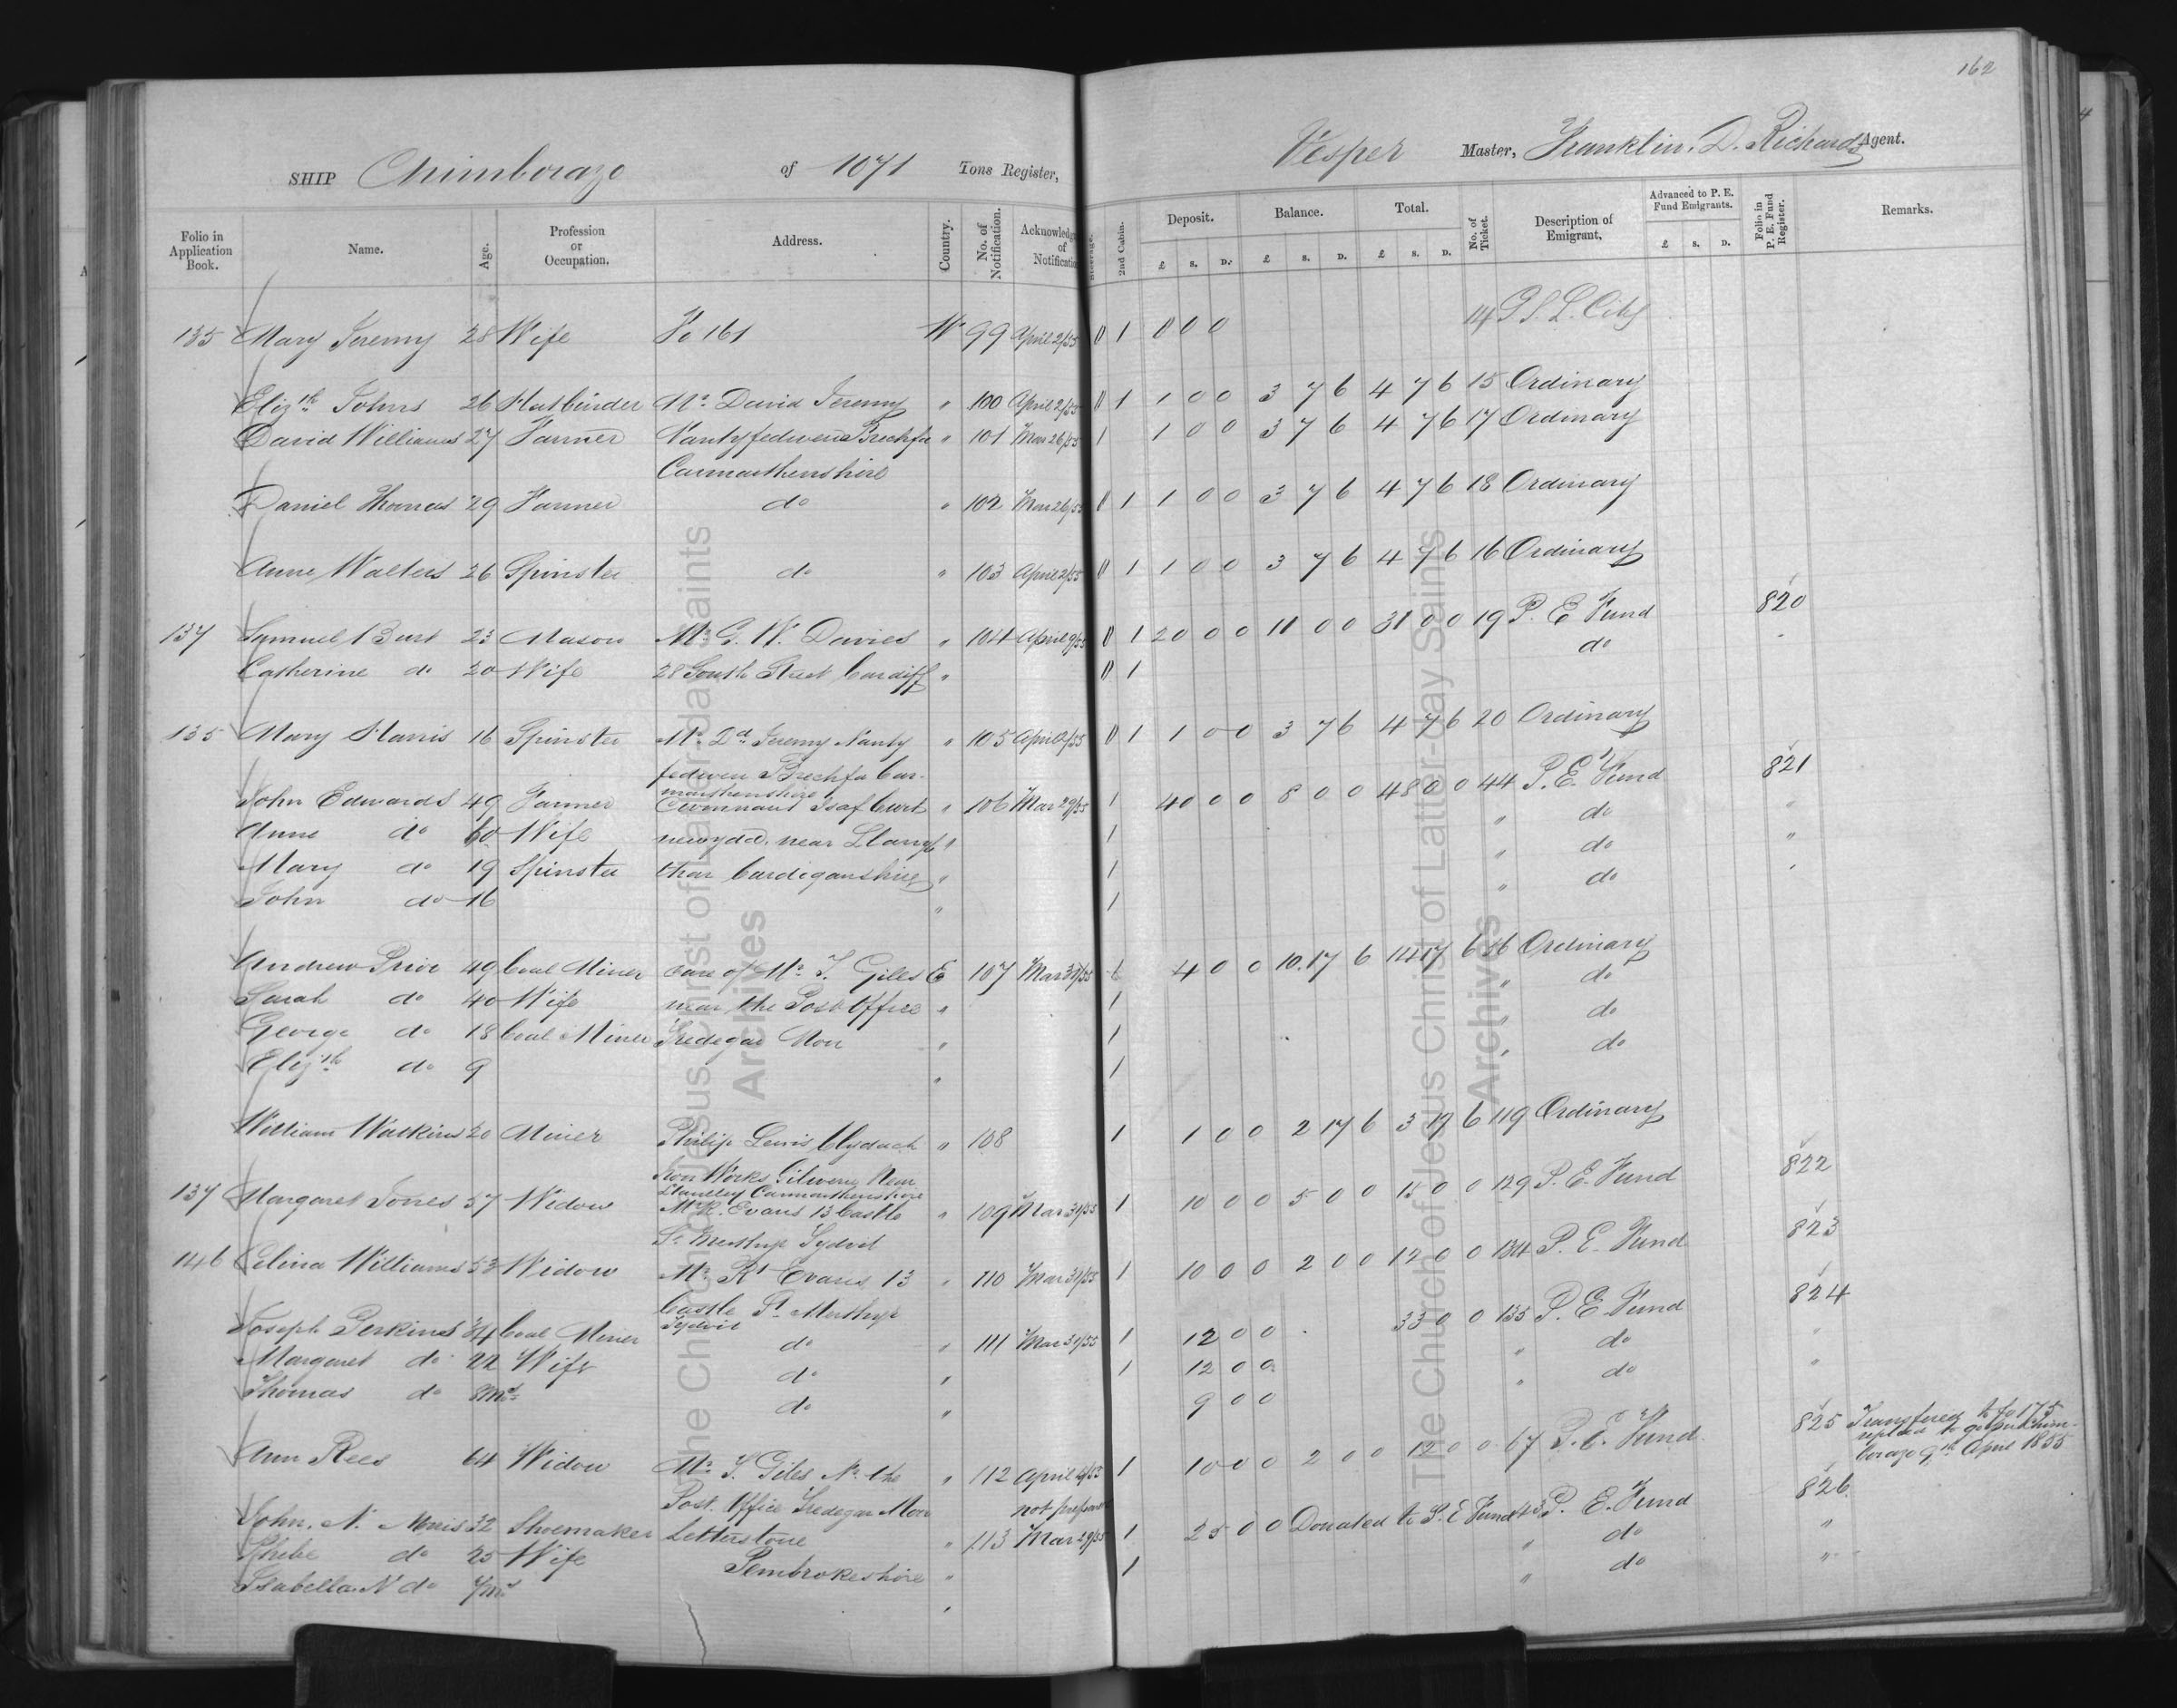 162
SHIP Chimborazo of 1071 Tons Register, Vesper Master, Franklin. D. Richards Agent.
Folio in Application Book. Name. Age. Profession or Occupation. Address. Country. No. of Notification. Acknowledg of Notificatio Steerage. 2nd Cabin. Deposit. £ s. D. Balance. £ s. D. Total. £ s. D. No. of Ticket. Description of Emigrant. Advanced to P. E. Fund Emigrants. £ s. D. Folio in P. E. Fund Register. Remarks.
135 Mary Jeremy 28 Wife Fo 161 W 99 April 2/55 0 1 0 0 0 14 P S. L. City
Elizth Johns 26 Mr. David Jeremy " 100 April 2/55 0 1 1 0 0 3 7 6 4 7 6 15 Ordinary
David Williams 27 Farmer Nantyfedwen Brechfa " 101 Mar 26/55 1 1 0 0 3 7 6 4 7 6 17 Ordinary
Carmarthenshire
Daniel Thomas 29 Farmer do " 102 Mar 26/55 0 1 1 0 0 3 7 6 4 7 6 18 Ordinary
Anne Walters 26 Spinster do " 103 April 2/55 0 1 1 0 0 3 7 6 4 7 6 16 Ordinary
137 Samuel Burt 23 Mason Mr. G. W. Davies " 104 April 9/55 0 1 20 0 0 11 0 0 31 0 0 19 P. E Fund 820
Catherine do 20 Wife 28 South Street Cardiff " 0 1 do
135 Mary Harris 16 Spinster Mr. Dd Jeremy Nanty " 105 April 2/55 0 1 1 0 0 3 7 6 4 7 6 20 Ordinary
fedwen Brechfa Car-
marthenshire
John Edwards 49 Farmer Isaf Cwrt " 106 Mar 29/55 1 40 0 0 8 0 0 48 0 0 44 P. E. Fund 821
Anne do 60 Wife newydd. near Llangy " 1 " do "
Mary do 19 Spinster than Cardiganshire " 1 " do "
John do 16 " 1 " do "
Andrew Price 49 Coal Miner care of Mr T. Giles E 107 Mar 31/55 1 4 0 0 10. 17 6 14 17 6 46 Ordinary
Sarah do 40 Wife near the Post Office " 1 " do
George do 18 Coal Miner Tredegar Mon " 1 " do
Elizth do 9 " 1 " do
William Watkins 20 Miner Philip Lewis Clydach " 108 1 1 0 0 2 17 6 3 17 6 119 Ordinary
Iron Works Gilwern Near
Llanelley Carmarthenshire
137 Margaret Jones 57 Widow Mr R. Evans 13 Castle " 109 Mar 31/55 1 10 0 0 5 0 0 15 0 0 129 P. E. Fund 822
St. Merthyr Tydvil
146 Selina Williams 53 Widow Mr. Rt Evans 13 " 110 Mar 31/55 1 10 0 0 2 0 0 12 0 0 134 P. E. Fund 823
Castle St Merthyr
Tydvil
Joseph Perkins 34 Coal Miner do " 111 Mar 31/55 1 12 0 0 33 0 0 135 P. E Fund 824
Margaret do 22 Wife do " 1 12 0 0 " do "
Thomas do 8ms do " 9 0 0 " do "
Ann Rees 64 Widow Mr. T. Giles Nr. the " 112 April 4/55 1 10 0 0 2 0 0 12 0 0 67 P. E. Fund 825 Transfered to fo 175
replaced to go per Chim-
borazo 9th April 1855
Post. Office Tredegar Mon not prepared
John. N. Morris 32 Shoemaker Letterstone " 113 Mar 29/55 1 25 0 0 Donated to P. E Fund 43 P. E. Fund 826
Phebe do 25 Wife Pembrokeshire " 1 " do "
Isabella N do 7ms " " do "
The Church of Jesus Christ of Latter-day Saints
Archives
The Church of Jesus Christ of Latter-day Saints
Archives